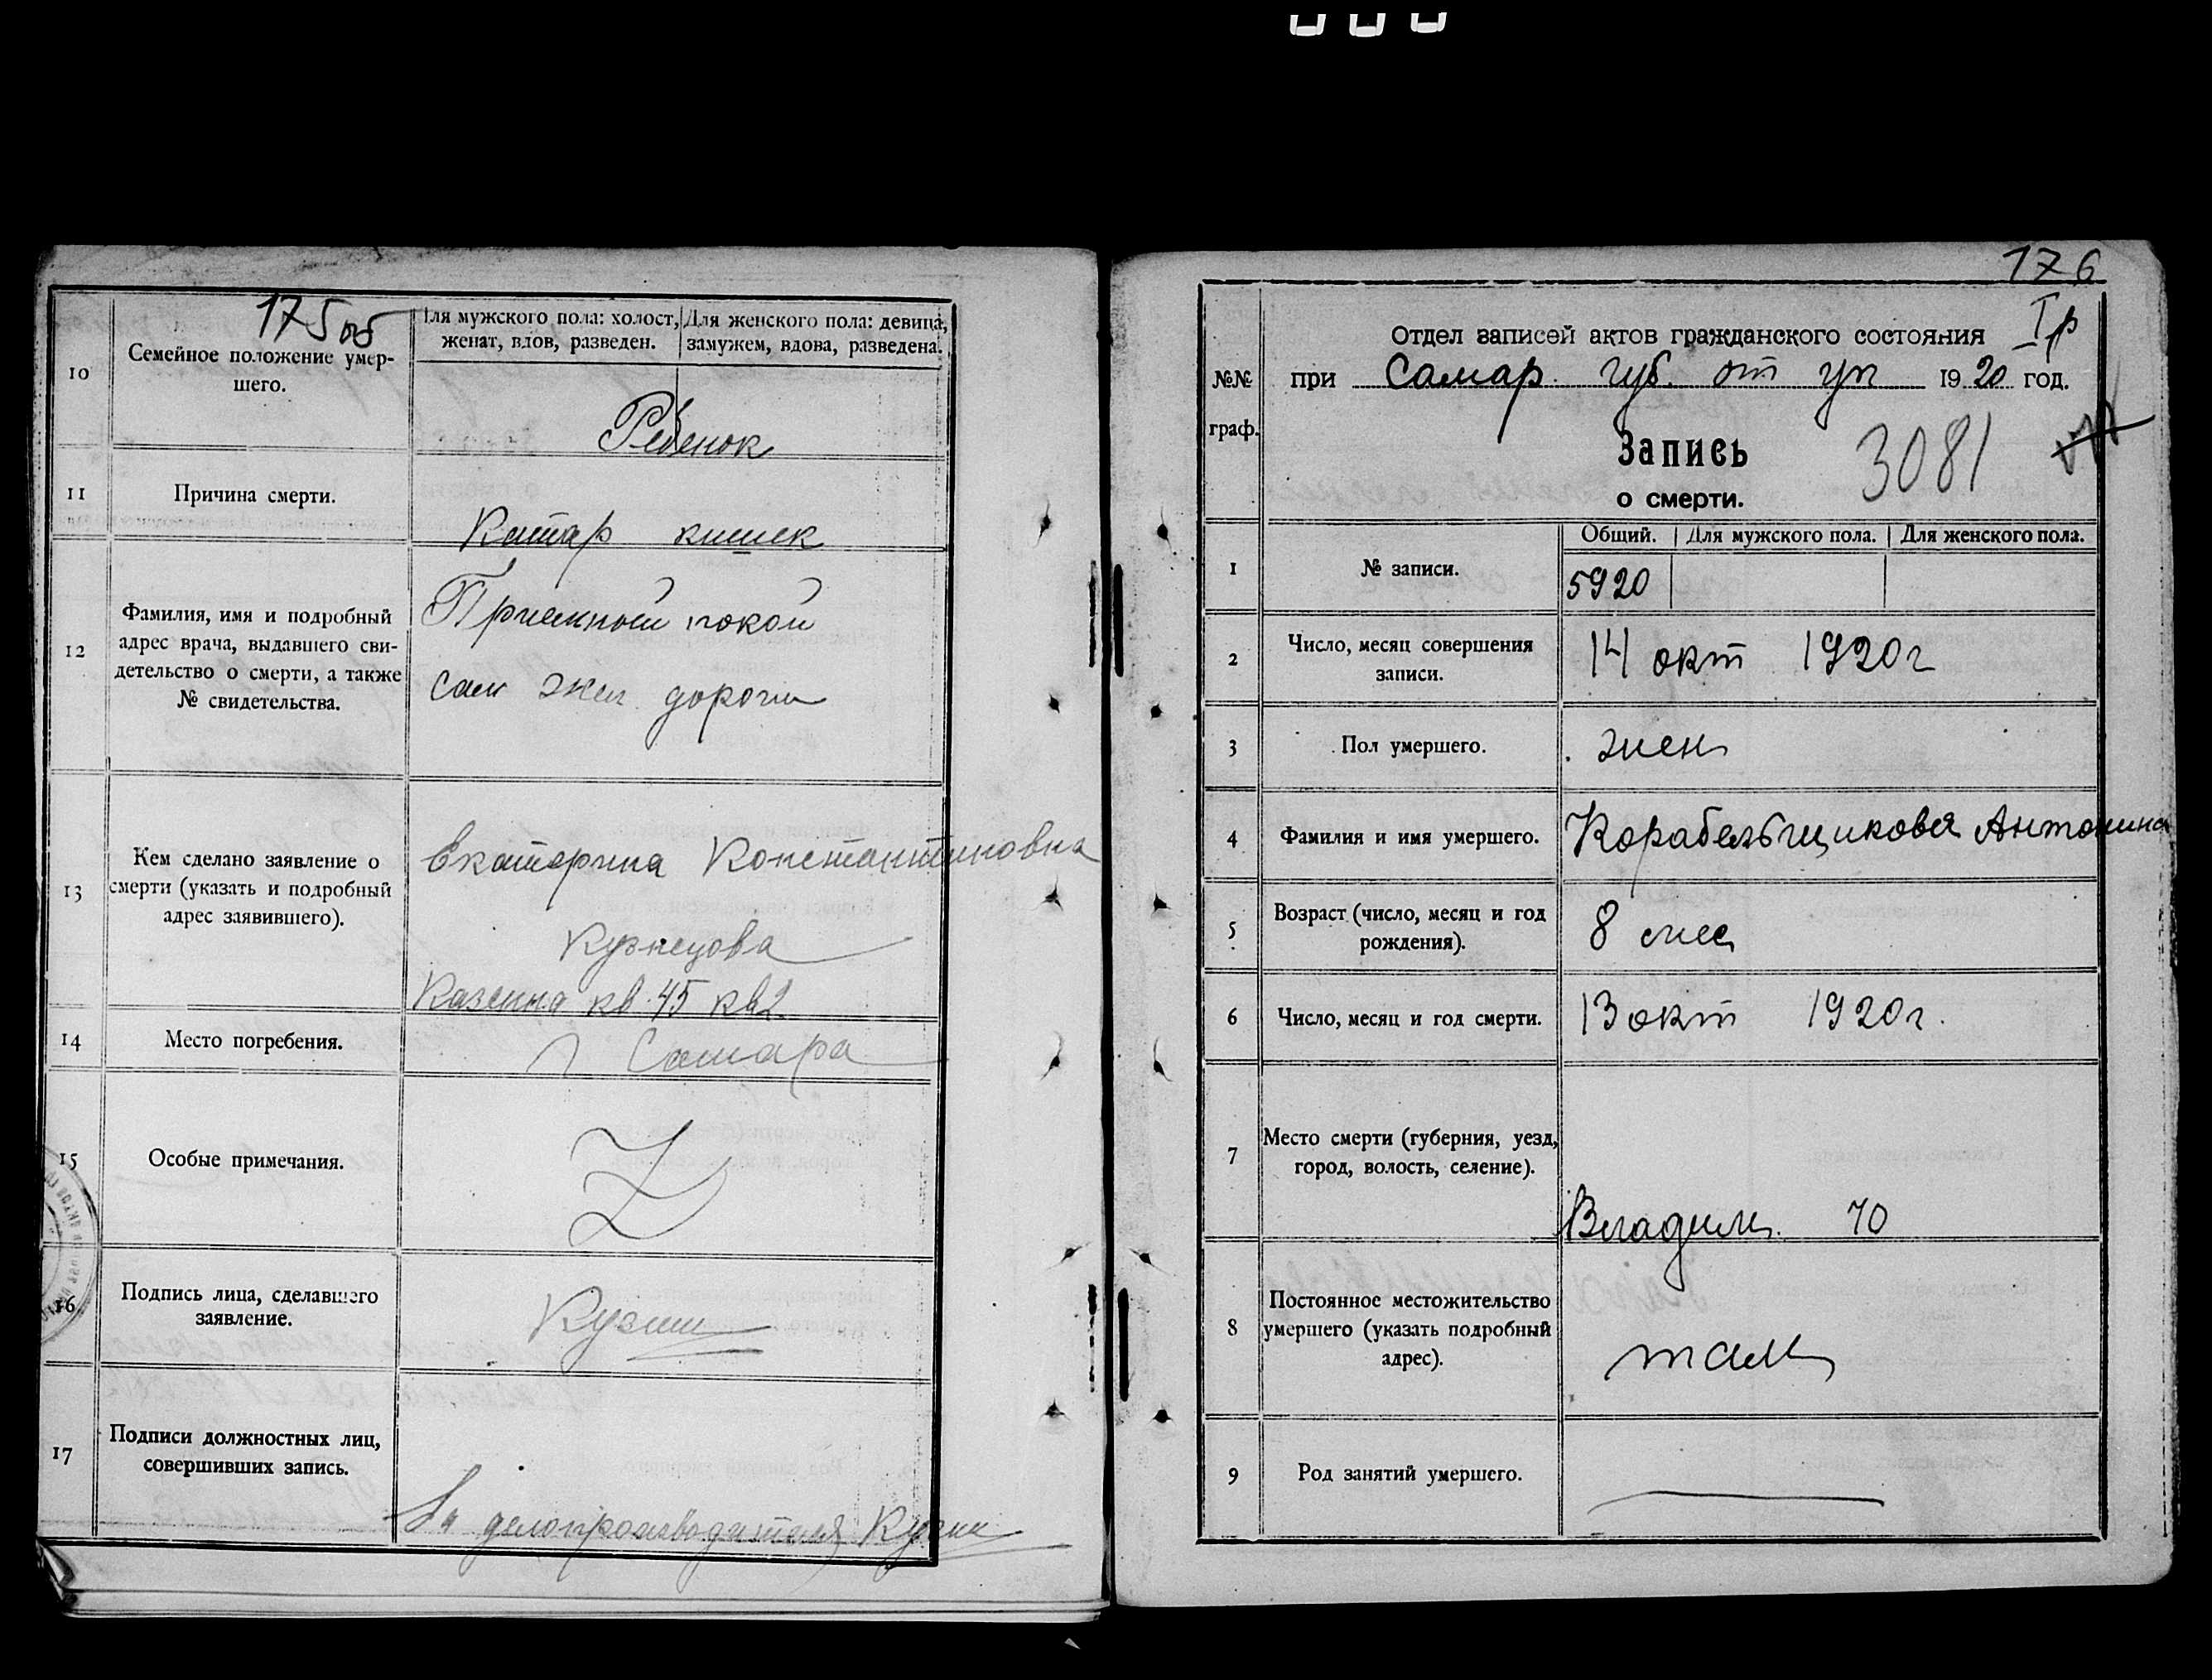 175 об
10
Семейное положение умер-
шего.
Для мужского пола: холост,
женат, вдов, разведен.
Для женского пола: девица,
замужем, вдова, разведена.
Ребенок
11
Причина смерти.
Катар кишек
12
Фамилия, имя и подробный
адрес врача, выдавшего сви-
детельство о смерти, а также
№ свидетельства.
Приемный покой
сам жел. дороги
13
Кем сделано заявление о
смерти (указать и подробный
адрес заявившего).
Екатерина Константиновна
Кузнецова
Казенна кв. 45 кв 2
14
Место погребения.
г Самара
15
Особые примечания.
Z
16
Подпись лица, сделавшего
заявление.
17
Подписи должностных лиц,
совершивших запись.
За делопроизводителя
176
I р
№№
граф.
Отдел записей актов гражданского состояния
при Самар. губ. от уп 1920 год.
Запись
о смерти.
3081
1
№ записи.
Общий.
Для мужского пола.
Для женского пола.
5920
2
Число, месяц совершения
записи.
14 окт 1920 г
3
Пол умершего.
жен
4
Фамилия и имя умершего.
Корабельщикова Антонина
5
Возраст (число, месяц и год
рождения).
8 мес
6
Число, месяц и год смерти.
13 окт 1920 г.
7
Место смерти (губерния, уезд,
город, волость, селение).
Владим. 70
8
Постоянное местожительство
умершего (указать подробный
адрес).
там
9
Род занятий умершего.